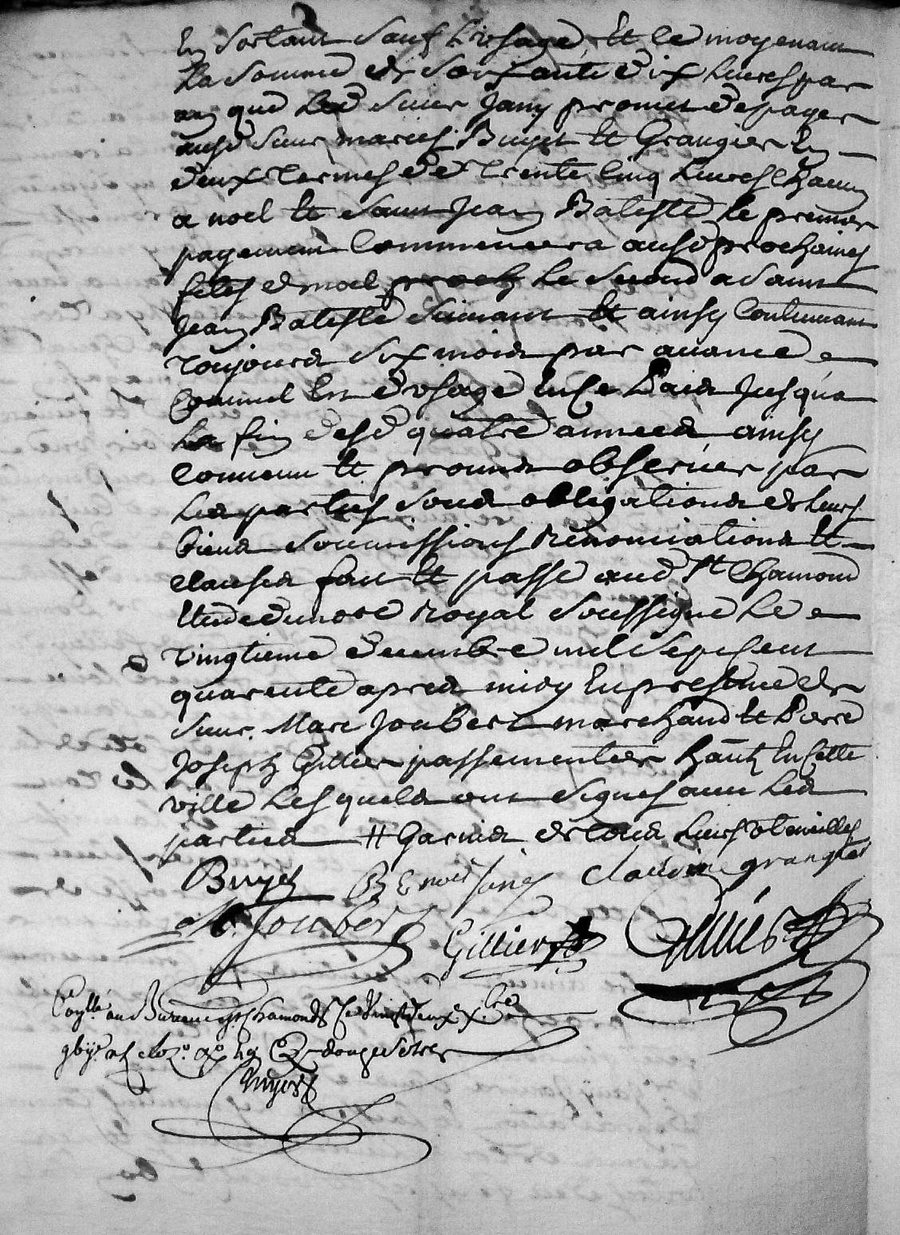 En sortant sauf l'usage, Et le moyenant
La somme de soixante dix livres par
an que led sieur Jany promet de payer
ausd sieur maries Buyet Et Grangier En
deux termes de trente cinq livres chacun
a noel Et Saint Jean Batiste le premier
payement commencera ausd prochaines
fetes de noel le second a Saint
Jean Batiste suivant Et ainsy continuant
toujours six mois par avance
Comme l'on d'usage Jusqua
La fin desd quatre années ainsy
convenu Et promis observer par
Les parties sous obligations de leurs
biens soumissions Renonciations Et
clauses fait Et passé aud St Chamond
Etude du nore Royal soussigné Le
vingtieme decembre mil sept cent
quarente apres midy En presence de
sieur Marc Joubert marchand Et Pierre
Joseph Gillier passementier habitz En cette
ville Lesquels ont signes avec Les
parties # Garnis de tous leurs
Buyet Benoist Claudine grangier
M. Joubert
Gillier
au Bureau de St Chamond Ce vingt deux xbre
douze